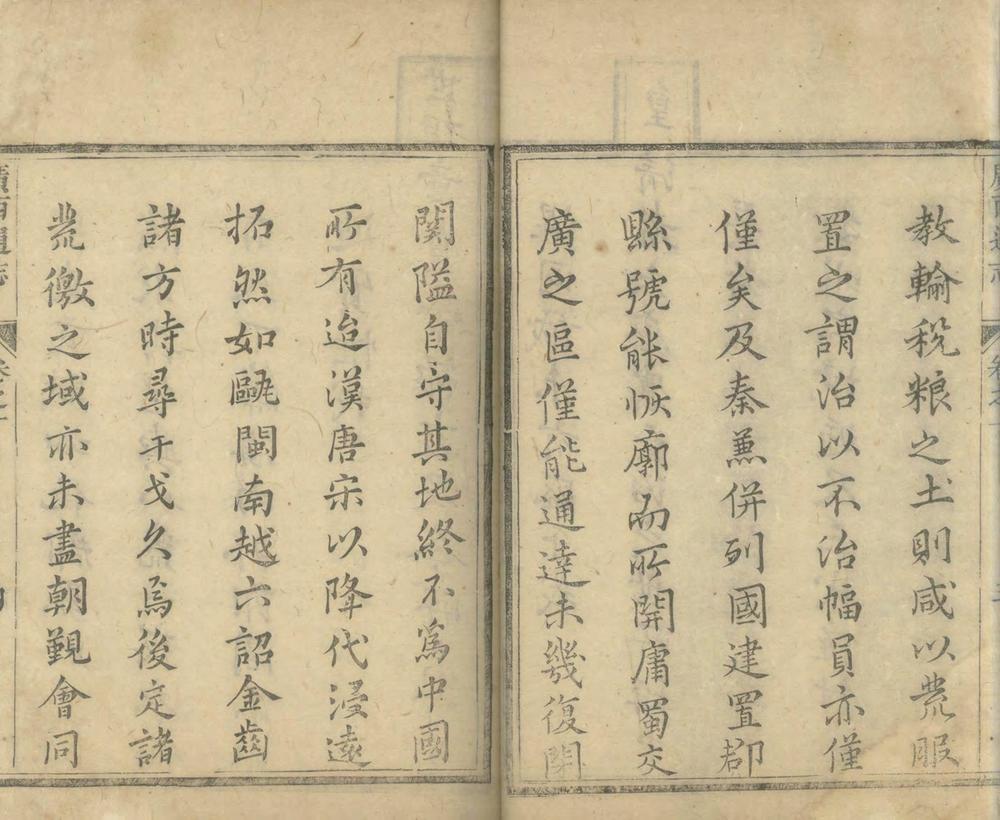 教輸稅粮之土則咸以荒服
置之謂治以不治幅員亦僅
僅矣及秦兼併列國建置郡
縣號能恢廓而所開庸蜀交
廣之區僅能通達未幾復閉
関隘自守其地終不爲中國
所有迨漢唐宋以降代浸遠
拓然如甌閩南越六詔金齒
諸方時尋干戈久焉後定諸
荒徼之域亦未盡朝覲會同
廣西通志